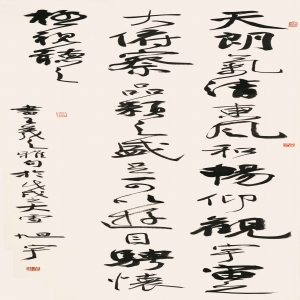 天朗氣清惠風和暢仰觀宇宙之
大俯察品類之盛足可以遊目騁懷
極視聽之
書王羲之雅句於戊戌